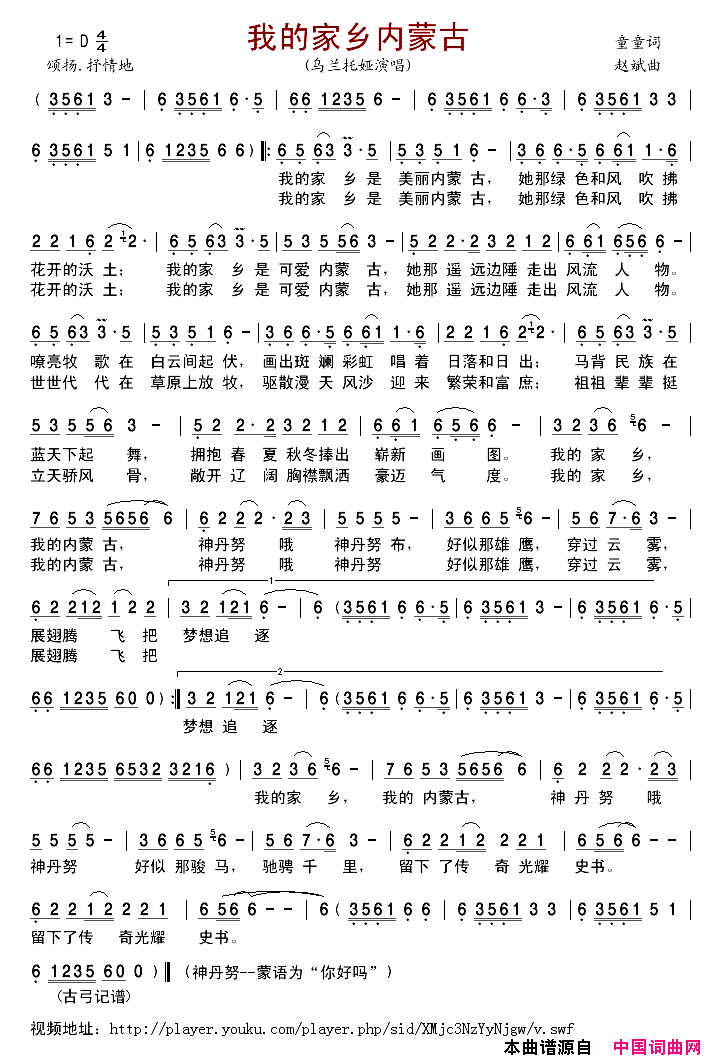 我的家乡内蒙古
1=D 4/4
颂扬.抒情地
(乌兰托娅演唱)
童童词
赵斌曲
( 3561 3 - | 6 3561 6·5 | 66 1235 6 - | 6 3561 66·3 | 6 3561 3 3 |
6 3561 5 1 | 6 1235 6 6 ) ‖: 6 5 63 3·5 | 5 3 5 1 6 - | 3 6 6·5 6 61 1·6 |
我的家 乡是 美丽内蒙古， 她那绿 色和风 吹拂
我的家 乡是 美丽内蒙古， 她那绿 色和风 吹拂
2 2 1 6 2 1 2· | 6 5 63 3·5 | 5 3 5 56 3 - | 5 2 2·2 3 2 1 2 | 6 61 656 6 - |
花开的沃 土； 我的家 乡是 可爱 内蒙 古， 她那 遥 远边陲 走出 风流 人 物。
花开的沃 土； 我的家 乡是 可爱 内蒙 古， 她那 遥 远边陲 走出 风流 人 物。
6 5 63 3·5 | 5 3 5 1 6 - | 3 6 6·5 6 61 1·6 | 2 2 1 6 2 12 2· | 6 5 63 3·5 |
嘹亮牧 歌在 白云间起 伏， 画出斑 斓 彩虹 唱着 日落和日 出； 马背 民 族在
世世代 代在 草原上放 牧， 驱散漫 天 风沙 迎来 繁荣和富 庶； 祖祖 辈 辈挺
5 3 5 56 3 - | 5 2 2·2 3 2 1 2 | 6 61 656 6 - | 3 2 3 6 5 6 - |
蓝天下起 舞， 拥抱 春 夏 秋冬捧出 崭新 画 图。 我的 家 乡，
立天骄风 骨， 敞开 辽 阔 胸襟飘洒 豪迈 气 度。 我的 家 乡，
7 6 5 3 5656 6 | 6 2 2 2·23 | 5 5 5 5 - | 3 6 6 5 5 6 - | 5 6 7·6 3 - |
我的内蒙 古， 神丹努 哦 神丹努 布， 好似那雄 鹰， 穿过 云 雾，
我的内蒙 古， 神丹努 哦 神丹努 好似那雄 鹰， 穿过 云 雾，
1
6 2 212 1 2 2 | 3 2 121 6 - | 6 ( 3561 6·5 | 6 3561 3 - | 6 3561 6·5 |
展翅腾 飞 把 梦想追 逐
展翅腾 飞 把
2
66 1235 60 0 ) :‖ 3 2 121 6 - | 6 ( 3561 6·5 | 6 3561 3 - | 6 3561 6·5 |
梦想 追 逐
66 1235 6532 3216 ) | 3 2 3 6 5 6 - | 7 6 5 3 5656 6 | 6 2 22·23 |
我的家 乡， 我的 内蒙古， 神 丹 努 哦
5 5 5 5 - | 3 6 6 5 5 6 - | 5 6 7·6 3 - | 6 2 2 1 2 1 2 2 1 | 6 56 6 - |
神丹努 好似 那骏 马， 驰骋 千 里， 留下 了传 奇 光耀 史书。
6 2 2 1 2 1 2 2 1 | 6 56 6 - - | 6 ( 3561 6 6 | 6 3561 3 - | 6 3561 6·5 |
留下了传 奇光耀 史书。
6 1235 60 0 ) ‖ (神丹努--蒙语为“你好吗”)
(古弓记谱)
视频地址：http://player.youku.com/player.php/sid/XMjc3NzYyNjgw/v.swf
本曲谱源自 中国词曲网